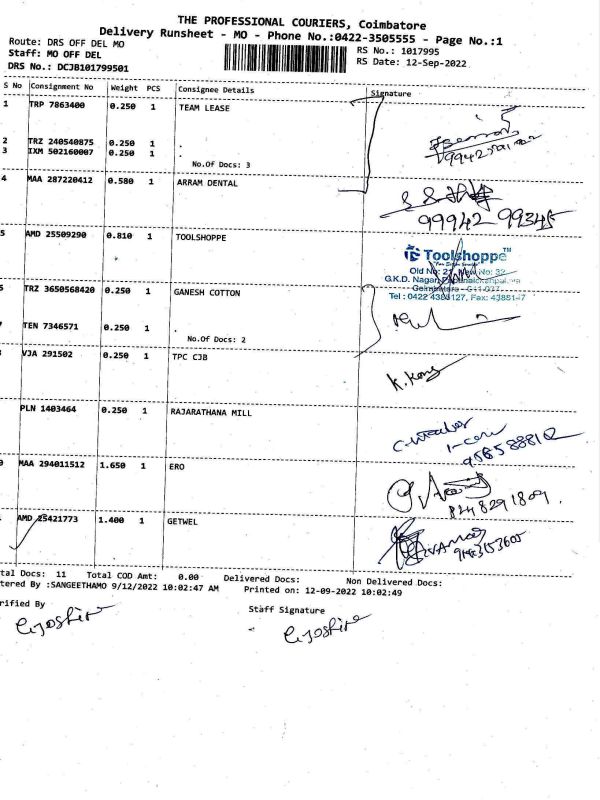 THE PROFESSIONAL COURIERS, Coimbatore
Delivery Runsheet - MO - Phone No.:0422-3505555 - Page No.:1
Route: DRS OFF DEL MO
Staff: MO OFF DEL
DRS No.: DCJB101799501
RS No.: 1017995
RS Date: 12-Sep-2022
S No Consignment No Weight PCS Consignee Details Signature
1 TRP 7863400 0.250 1 TEAM LEASE
2 TRZ 240540875 0.250 1 .
3 IXM 502160007 0.250 1 .
No.Of Docs: 3
4 MAA 287220412 0.580 1 ARRAM DENTAL
99942 99345
5 AMD 25509290 0.810 1 TOOLSHOPPE
Toolshoppe™
Old No: 21, New No: 32
G.K.D. Nagar,
Tel : 0422 4383127, Fax: 4388147
TRZ 3650568420 0.250 1 GANESH COTTON
TEN 7346571 0.250 1 .
No.Of Docs: 2
VJA 291502 0.250 1 TPC CJB
PLN 1403464 0.250 1 RAJARATHANA MILL
MAA 294011512 1.650 1 ERO
8248291809
AMD 25421773 1.400 1 GETWEL
tal Docs: 11 Total COD Amt: 0.00 Delivered Docs: Non Delivered Docs:
tered By :SANGEETHAMO 9/12/2022 10:02:47 AM Printed on: 12-09-2022 10:02:49
rified By Staff Signature